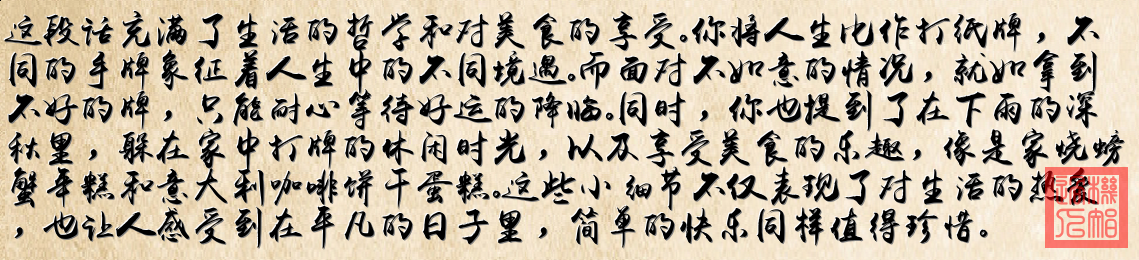 这段话充满了生活的哲学和对美食的享受。你将人生比作打纸牌，不
同的手牌象征着人生中的不同境遇。而面对不如意的情况，就如拿到
不好的牌，只能耐心等待好运的降临。同时，你也提到了在下雨的深
秋里，躲在家中打牌的休闲时光，以及享受美食的乐趣，像是家烧螃
蟹年糕和意大利咖啡饼干蛋糕。这些小细节不仅表现了对生活的热爱
，也让人感受到在平凡的日子里，简单的快乐同样值得珍惜。